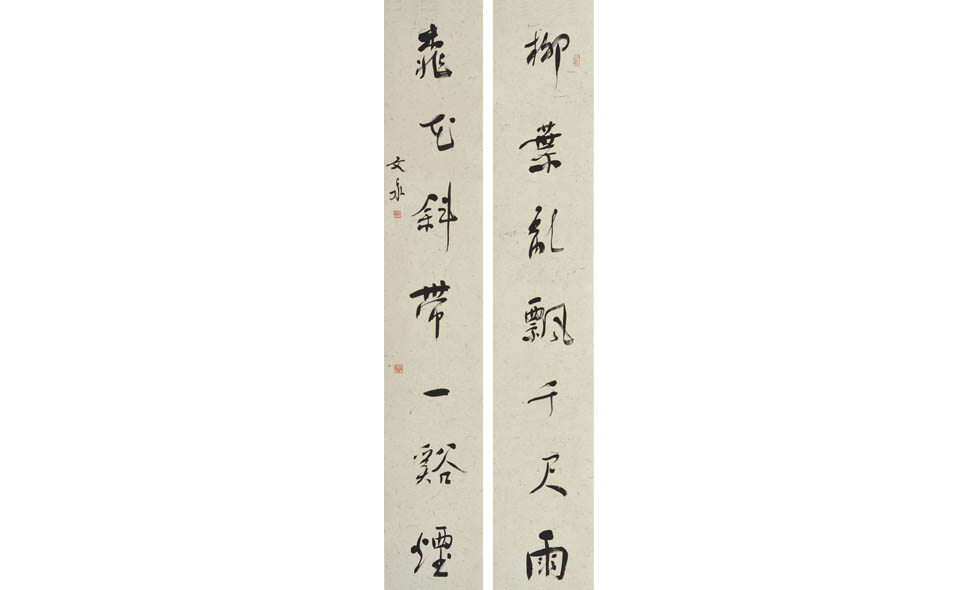 柳葉亂飄千尺雨
桃花斜帶一谿煙
文泉